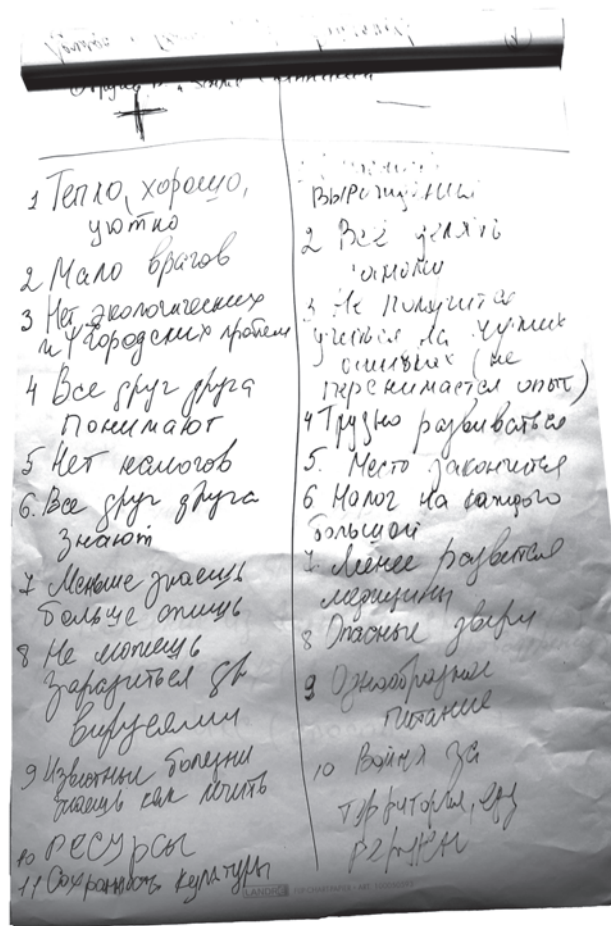 +
—
1 Тепло, хорошо,
уютно
2 Мало врагов
3 Нет экологических
и городских проблем
4 Все друг друга
понимают
5 Нет налогов
6. Все друг друга
знают
7 Меньше знаешь
больше спишь
8 Не можешь
заразиться
вирусами
9 Известные болезни
знаешь как лечить
10 Ресурсы
11 Сохранность культуры
вырождения
2 Все делять
3 Не получится
учиться на чужих
ошибках (не
перенимается опыт)
4 Трудно развиваться
5. Место закончится
6 Налог на каждого
большой
7. Менее развится
медицины
8 Опасные звери
9 Однообразное
питание
10 Война за
территория, еду
LANDRE